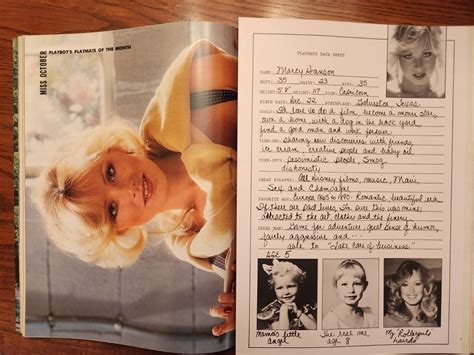 MISS OCTOBER
PLAYBOY'S PLAYMATE OF THE MONTH
PLAYMATE DATA SHEET
NAME: Marcy Hanson
BUST: 35 WAIST: 23 HIPS: 35
HEIGHT: 5'8" WEIGHT: 117 SIGN: Capricorn
BIRTH DATE: Dec. 22 BIRTHPLACE: Galveston, Texas
GOALS: I'd love to do a film, become a movie star,
own a home, with a dog in the back yard,
find a good man and work forever.
TURN-ONS: sharing new discoveries with friends,
ice cream, creative people and baby oil
TURN-OFFS: pessimistic people, Smog,
dishonesty
GREAT ESCAPES: All Disney films, music, Maui,
Sex and Champagne
FAVORITE Europe Romantic, beautiful era
If there are past lives, I'm sure this was mine,
attracted to the art, clothes and the finery
IDEAL MAN: Game for adventure, great sense of humor,
fairly aggressive and ...
able to "Take care of business"
AGE 5
Mama's little
angel
The real me
age 8
My Rollergirls
hairdo